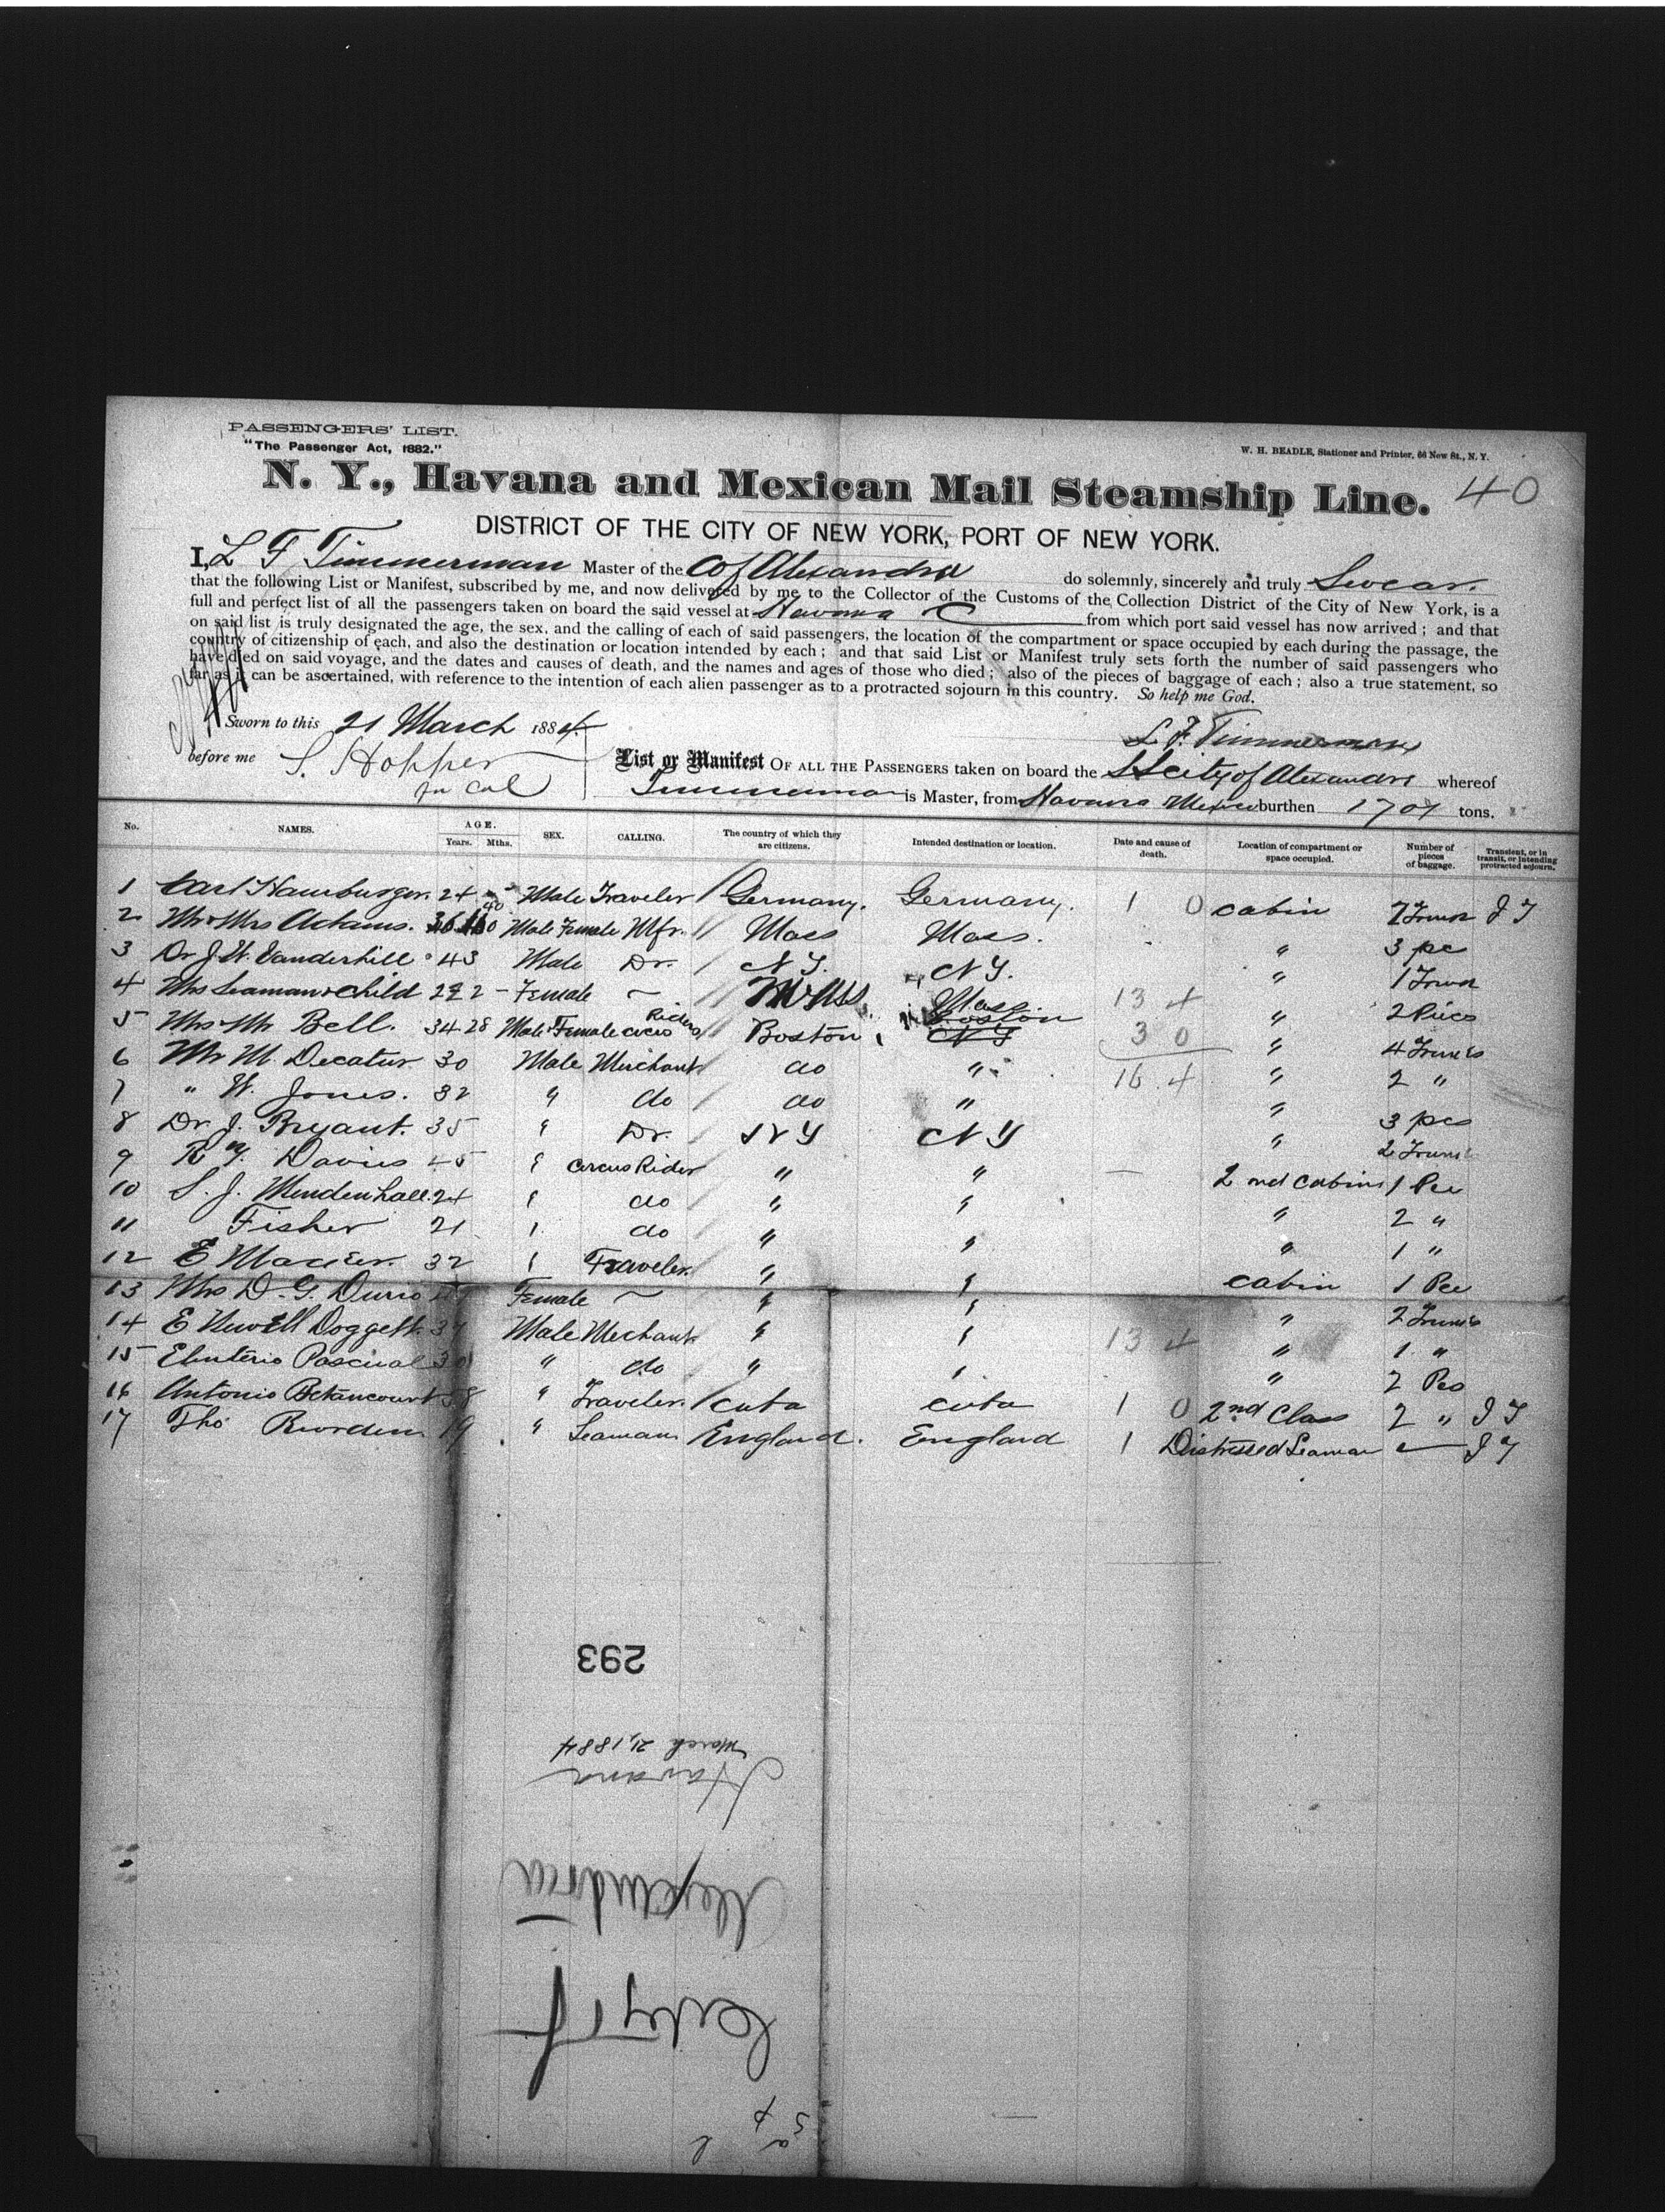 PASSENGERS' LIST.
"The Passenger Act, 1882."
W. H. BEADLE, Stationer and Printer, 66 New St., N. Y.
N. Y., Havana and Mexican Mail Steamship Line. 40
DISTRICT OF THE CITY OF NEW YORK, PORT OF NEW YORK.
I, L F Timmerman Master of the C of Alexandria do solemnly, sincerely and truly Swear.
that the following List or Manifest, subscribed by me, and now delivered by me to the Collector of the Customs of the Collection District of the City of New York, is a
full and perfect list of all the passengers taken on board the said vessel at Havana from which port said vessel has now arrived; and that
on said list is truly designated the age, the sex, and the calling of each of said passengers, the location of the compartment or space occupied by each during the passage, the
country of citizenship of each, and also the destination or location intended by each; and that said List or Manifest truly sets forth the number of said passengers who
have died on said voyage, and the dates and causes of death, and the names and ages of those who died; also of the pieces of baggage of each; also a true statement, so
far as it can be ascertained, with reference to the intention of each alien passenger as to a protracted sojourn in this country. So help me God.
Sworn to this 21 March 1884
L. F. Timmerman
before me S. Hopper
List or Manifest OF ALL THE PASSENGERS taken on board the SS City of Alexandria whereof
Timmerman is Master, from Havana Mexico burthen tons.
No. NAMES. AGE. Years. Mths. SEX. CALLING. The country of which they are citizens. Intended destination or location. Date and cause of death. Location of compartment or space occupied. Number of pieces of baggage. Transient, or in transit, or intending protracted sojourn.
1 Carl Hamburger. 24 Male Traveler / Germany. Germany. 1 0 cabin Trunk
2 Mr & Mrs Adams. 36 40 Male Female Mfr. // Mass Mass. 3 pc
3 Dr J. W. Vanderhill 43 Male Dr. / N Y. N Y. " 1 Trunk
4 Mrs Seaman & child Female // Mass Mass. 13 4 " 2 Pieces
5 Mrs Mr Bell. 34 28 Male Female Circus Riders // Boston Boston N Y 3 0 " 4 Trunks
6 Mr M. Decatur 30 Male Merchant / do " 16 4 " 2 "
7 " W. Jones. 32 " do / do " " 3 pcs
8 Dr. J. Bryant. 35 " Dr. / N Y N Y " 2 Trunks
9 Davis 45 " Circus Rider / " " 2nd Cabin 1 Pce
10 S. J. Mendenhall. 24 " do / " " " 2 "
11 Fisher 21 " do / " " " 1 "
12 E 32 " Traveler. / " " cabin 1 Pce
13 Mrs D. G. Female " " " 2 Trunks
14 E Newell Doggett Male Mechant " " 13 4 " 1 "
15 Eluterio Pascual " do " " " 2 Pcs
16 Antonio Betancourt 58 " Traveler. / Cuba Cuba 1 0 2nd Class 2 "
17 Tho 19 " Seaman / England. England 1 Distressed Seaman
293
March 21, 1884
Havana
Alexandria
City of